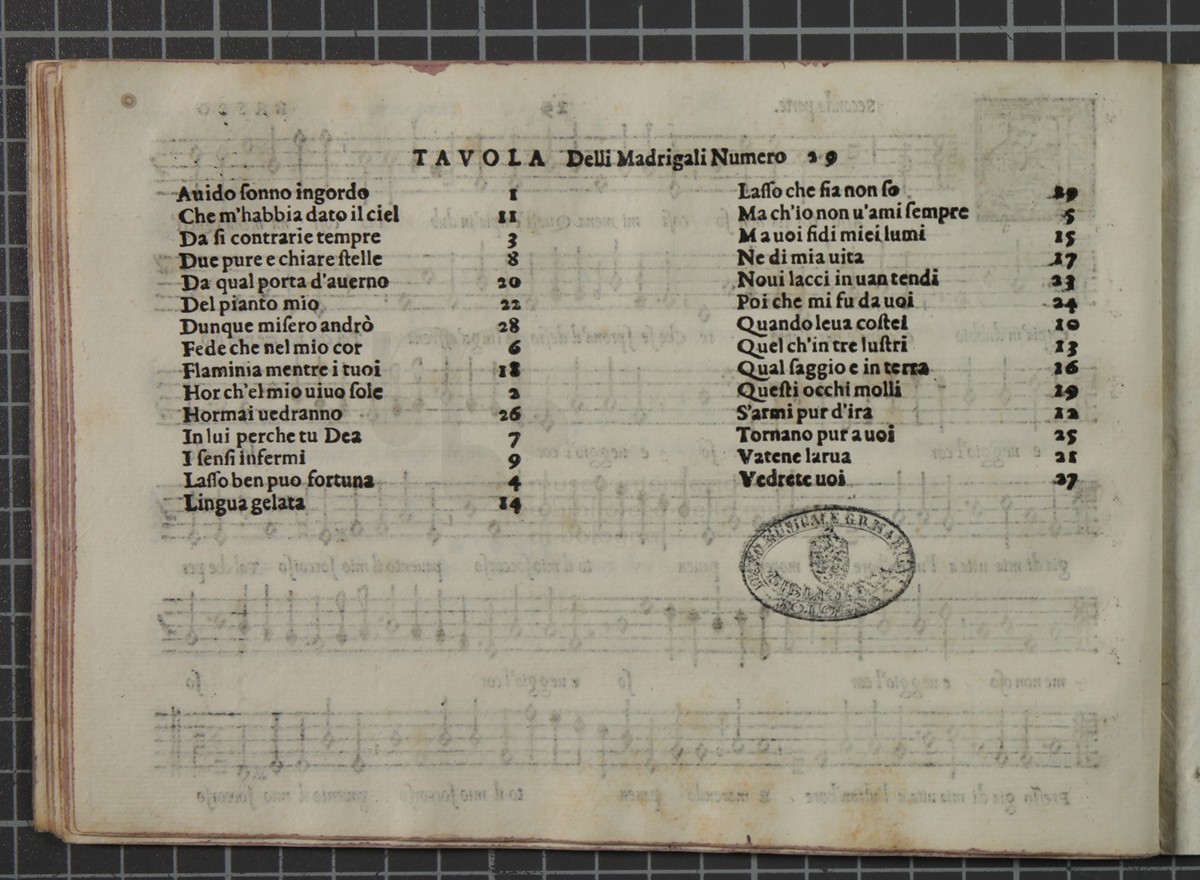 TAVOLA Delli Madrigali Numero 29
Auido ſonno ingordo 1
Che m'habbia dato il ciel 11
Da ſi contrarie tempre 3
Due pure e chiare ſtelle 8
Da qual porta d'auerno 20
Del pianto mio 22
Dunque miſero andrò 28
Fede che nel mio cor 6
Flaminia mentre i tuoi 18
Hor ch'el mio uiuo ſole 2
Hormai uedranno 26
In lui perche tu Dea 7
I ſenſi infermi 9
Laſſo ben puo fortuna 4
Lingua gelata 14
Laſſo che fia non ſo 29
Ma ch'io non u'ami ſempre 5
Ma uoi fidi miei lumi 15
Ne di mia uita 17
Noui lacci in uan tendi 23
Poi che mi fu da uoi 24
Quando leua coſtei 10
Quel ch'in tre luſtri 13
Qual ſaggio e in terra 16
Queſti occhi molli 19
S'armi pur d'ira 12
Tornano pur a uoi 25
Vatene larua 21
Vedrete uoi 27
LICEO MUSICALE G.B. MARTINI
BIBLIOTECA
BOLOGNA